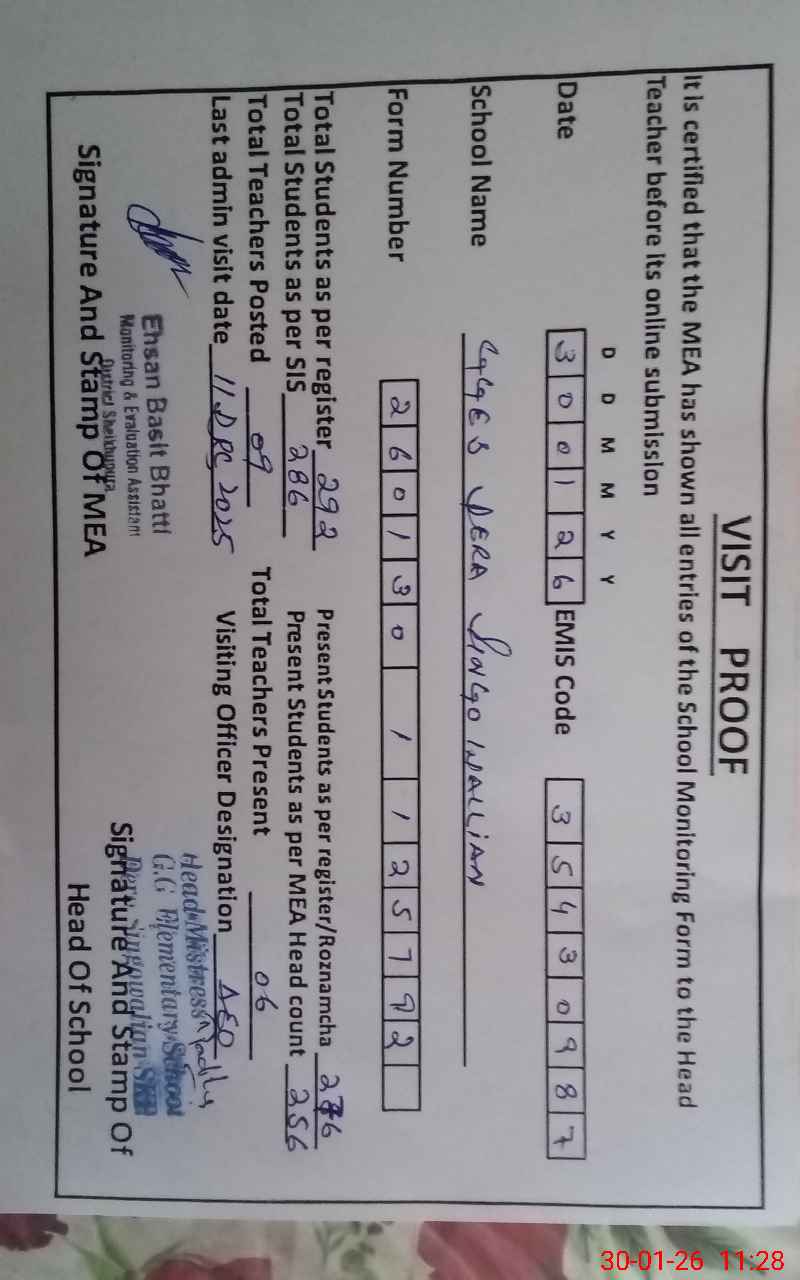 VISIT PROOF
It is certified that the MEA has shown all entries of the School Monitoring Form to the Head
Teacher before its online submission
D D M M Y Y
Date 3 0 0 1 2 6 EMIS Code 3 5 4 3 0 9 8 7
School Name GGES DERA SINGOWALLIAN
Form Number 2 6 0 1 3 0 1 1 2 5 7 9 2
Total Students as per register 292 Present Students as per register/Roznamcha 276
Total Students as per SIS 286 Present Students as per MEA Head count 256
Total Teachers Posted 09 Total Teachers Present 06
Last admin visit date 11 DEC 2025 Visiting Officer Designation AEO
Ehsan Basit Bhatti
Monitoring & Evaluation Assistant
District Sheikhupura
Signature And Stamp Of MEA
Head Mistress
G.G Elementary School
Dera Singowalian SKP
Signature And Stamp Of
Head Of School
30-01-26 11:28